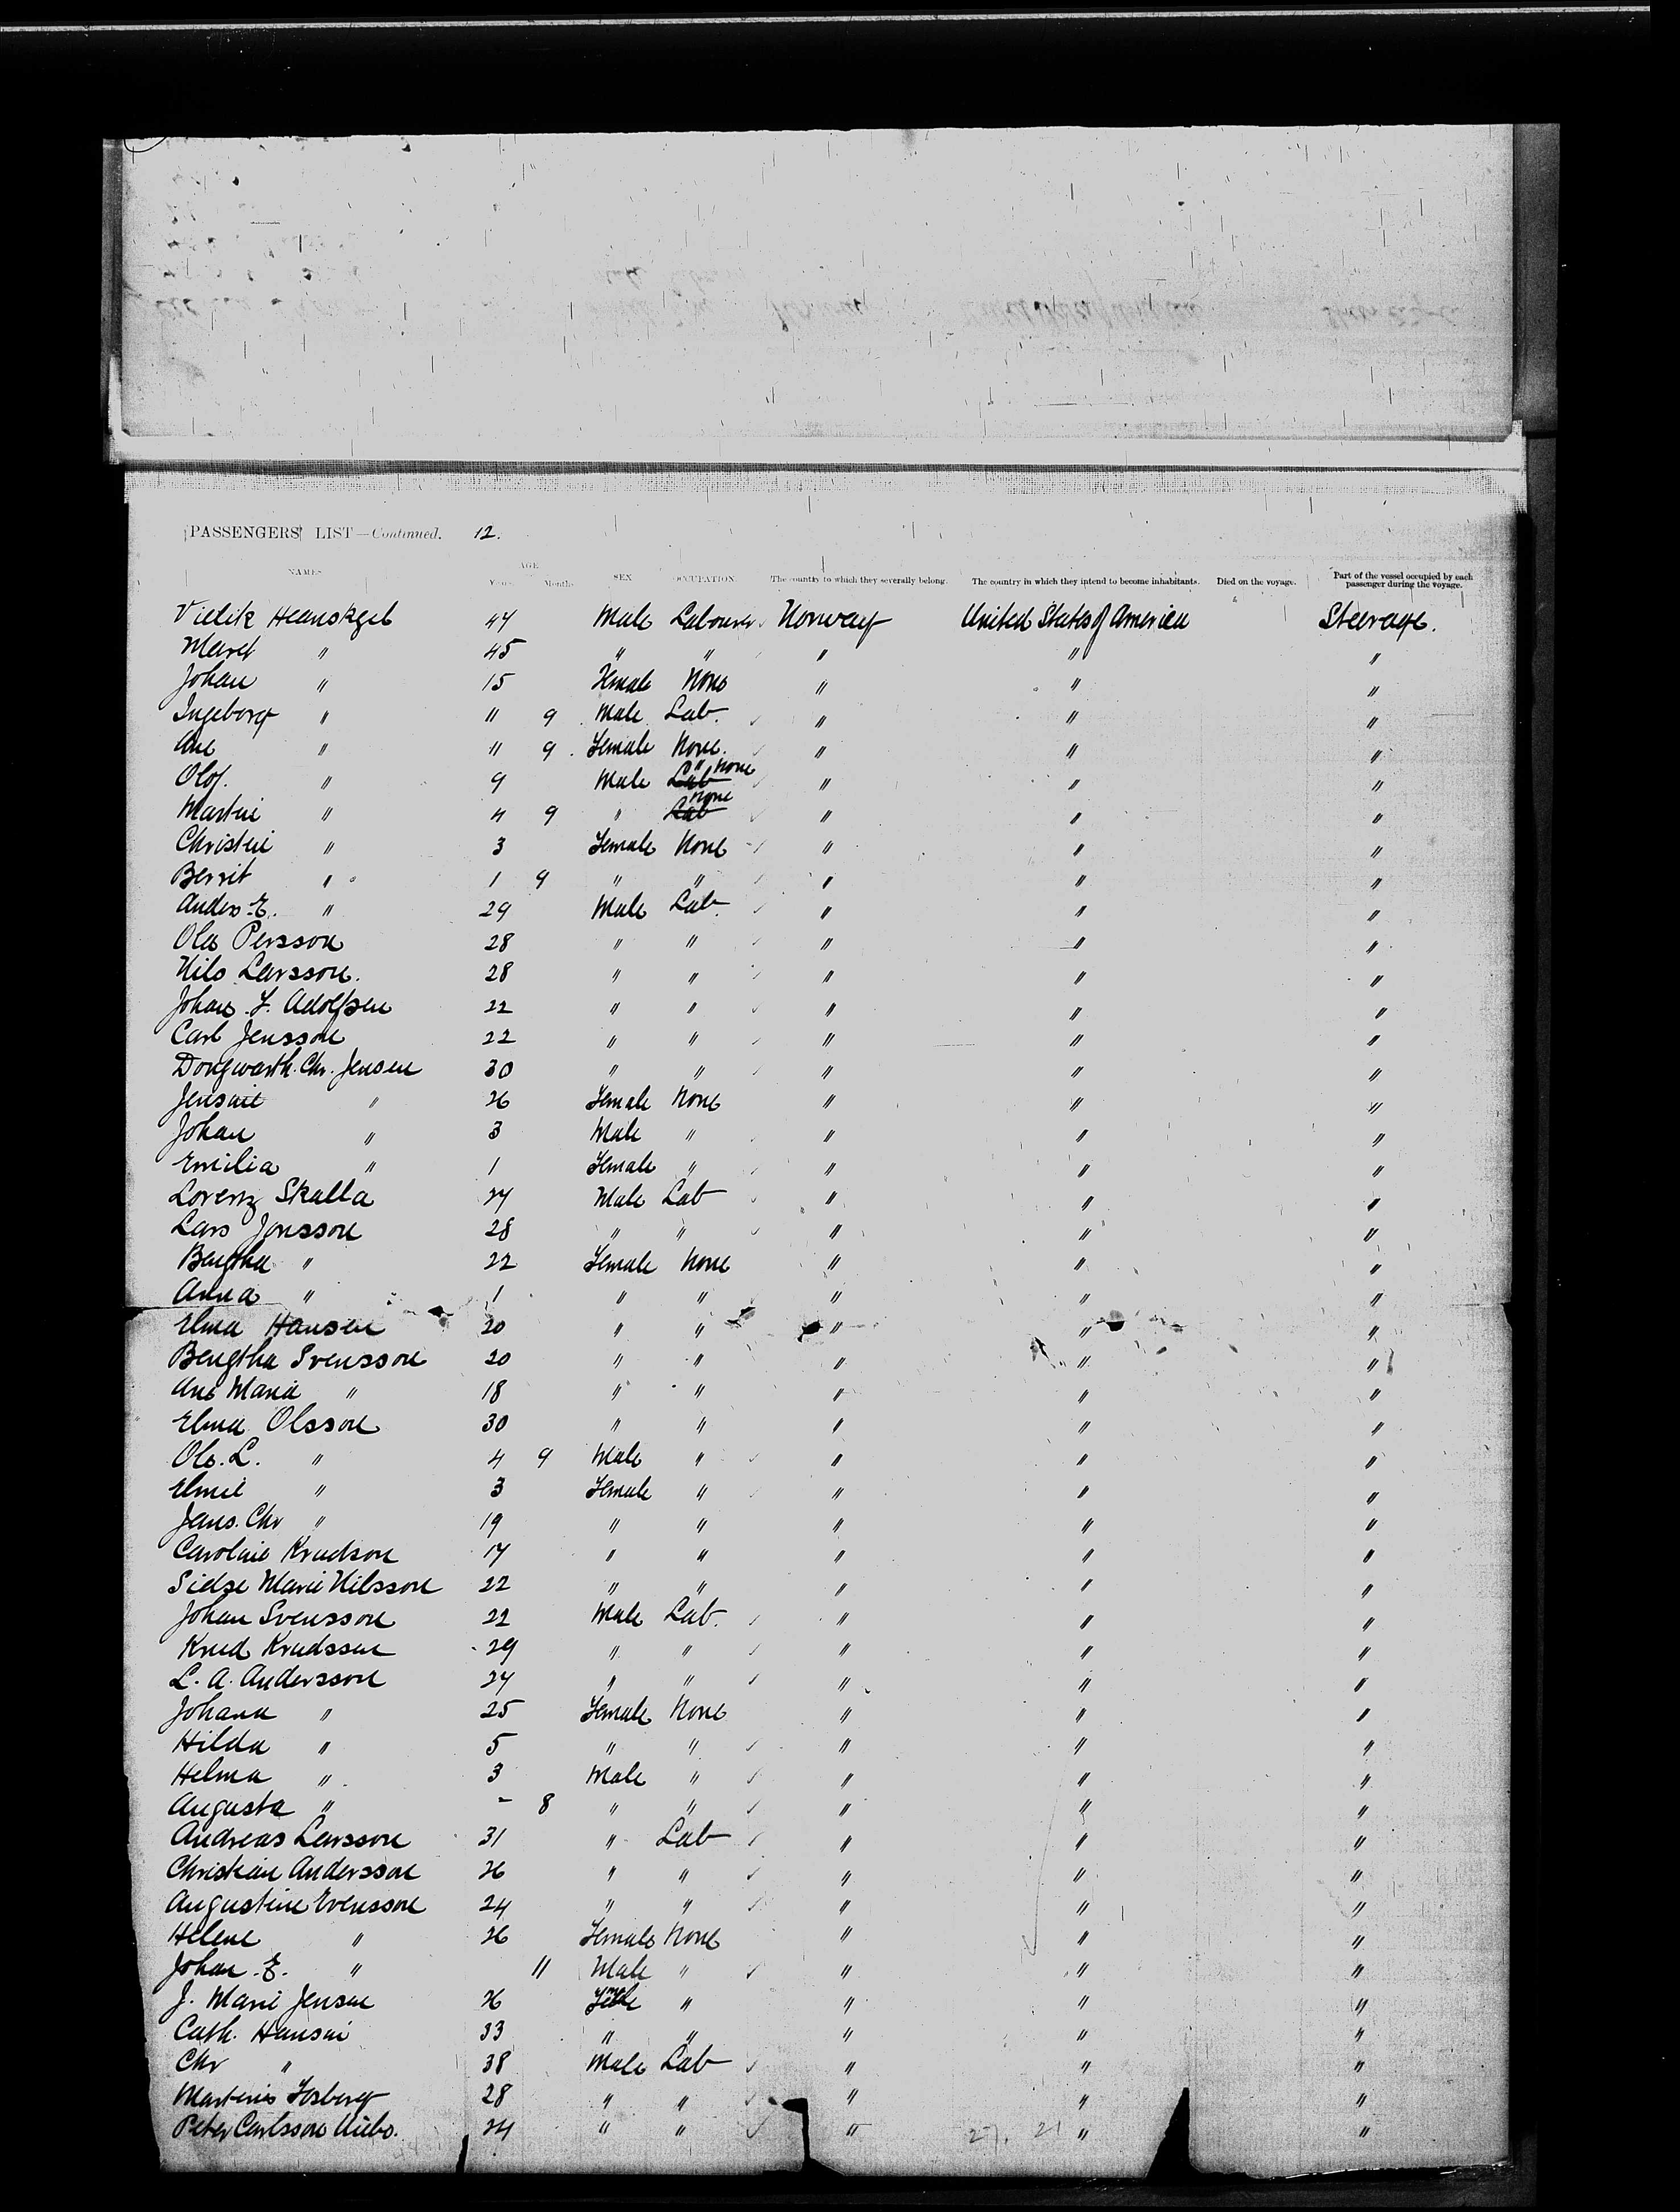 PASSENGERS' LIST—Continued. 12.
NAMES AGE Years. Months SEX OCCUPATION. The country to which they severally belong. The country in which they intend to become inhabitants. Died on the voyage. Part of the vessel occupied by each passenger during the voyage.
44 Male Labourer Norway United States of America Steerage.
Maret " 45 " " " " "
Johan " 15 Female None " " "
Ingeborg " 11 9 Male Lab. " " "
Ane " 11 9 Female None. " " "
Olof. " 9 Male Lab " None " " "
Martin " 4 9 " Lab None " " "
Christin " 3 Female None " " "
Berrit " 1 9 " " " " "
Anders E. " 29 Male Lab. " " "
Ola Persson 28 " " " " "
Nils Larsson. 28 " " " " "
Johan F. Adolfsen 22 " " " " "
Carl Jensson 22 " " " " "
Dongwarth. Chr. Jensen 30 " " " " "
Jensine " 26 Female None " " "
Johan " 3 Male " " " "
Emilia " 1 Female " " " "
Lorenz Skalla 24 Male Lab " " "
Lars Jonsson 28 " " " " "
Bengtha " 22 Female None " " "
Anna " 1 " " " " "
Elma Hansen 20 " " " " "
Bengtha Svensson 20 " " " " "
Ane Maria " 18 " " " " "
Elma Olsson 30 " " " " "
Ole. L. " 4 9 Male " " " "
Elmie " 3 Female " " " "
Jens. Chr " 19 " " " " "
Caroline Knudson 17 " " " " "
Sidse Marie Nilsson 22 " " " " "
Johan Svensson 22 Male Lab. " " "
Knud Knudssen 29 " " " " "
L. A. Andersson 24 " " " " "
Johana " 25 Female None " " "
Hilda " 5 " " " " "
Helma " 3 Male " " " "
Augusta " - 8 " " " " "
Andreas Larsson 31 " Lab " " "
Christian Andersson 26 " " " " "
Augustin Evensson 24 " " " " "
Helene " 26 Female None " " "
Johan E. " 11 Male " " " "
J. Marie Jensen 26 " " " "
Cath. Hansin 33 " " " " "
Chr " 38 Male Lab " " "
Martinis Fosberg 28 " " " " "
Peter Carlsson 24 " " " " "
27. 21